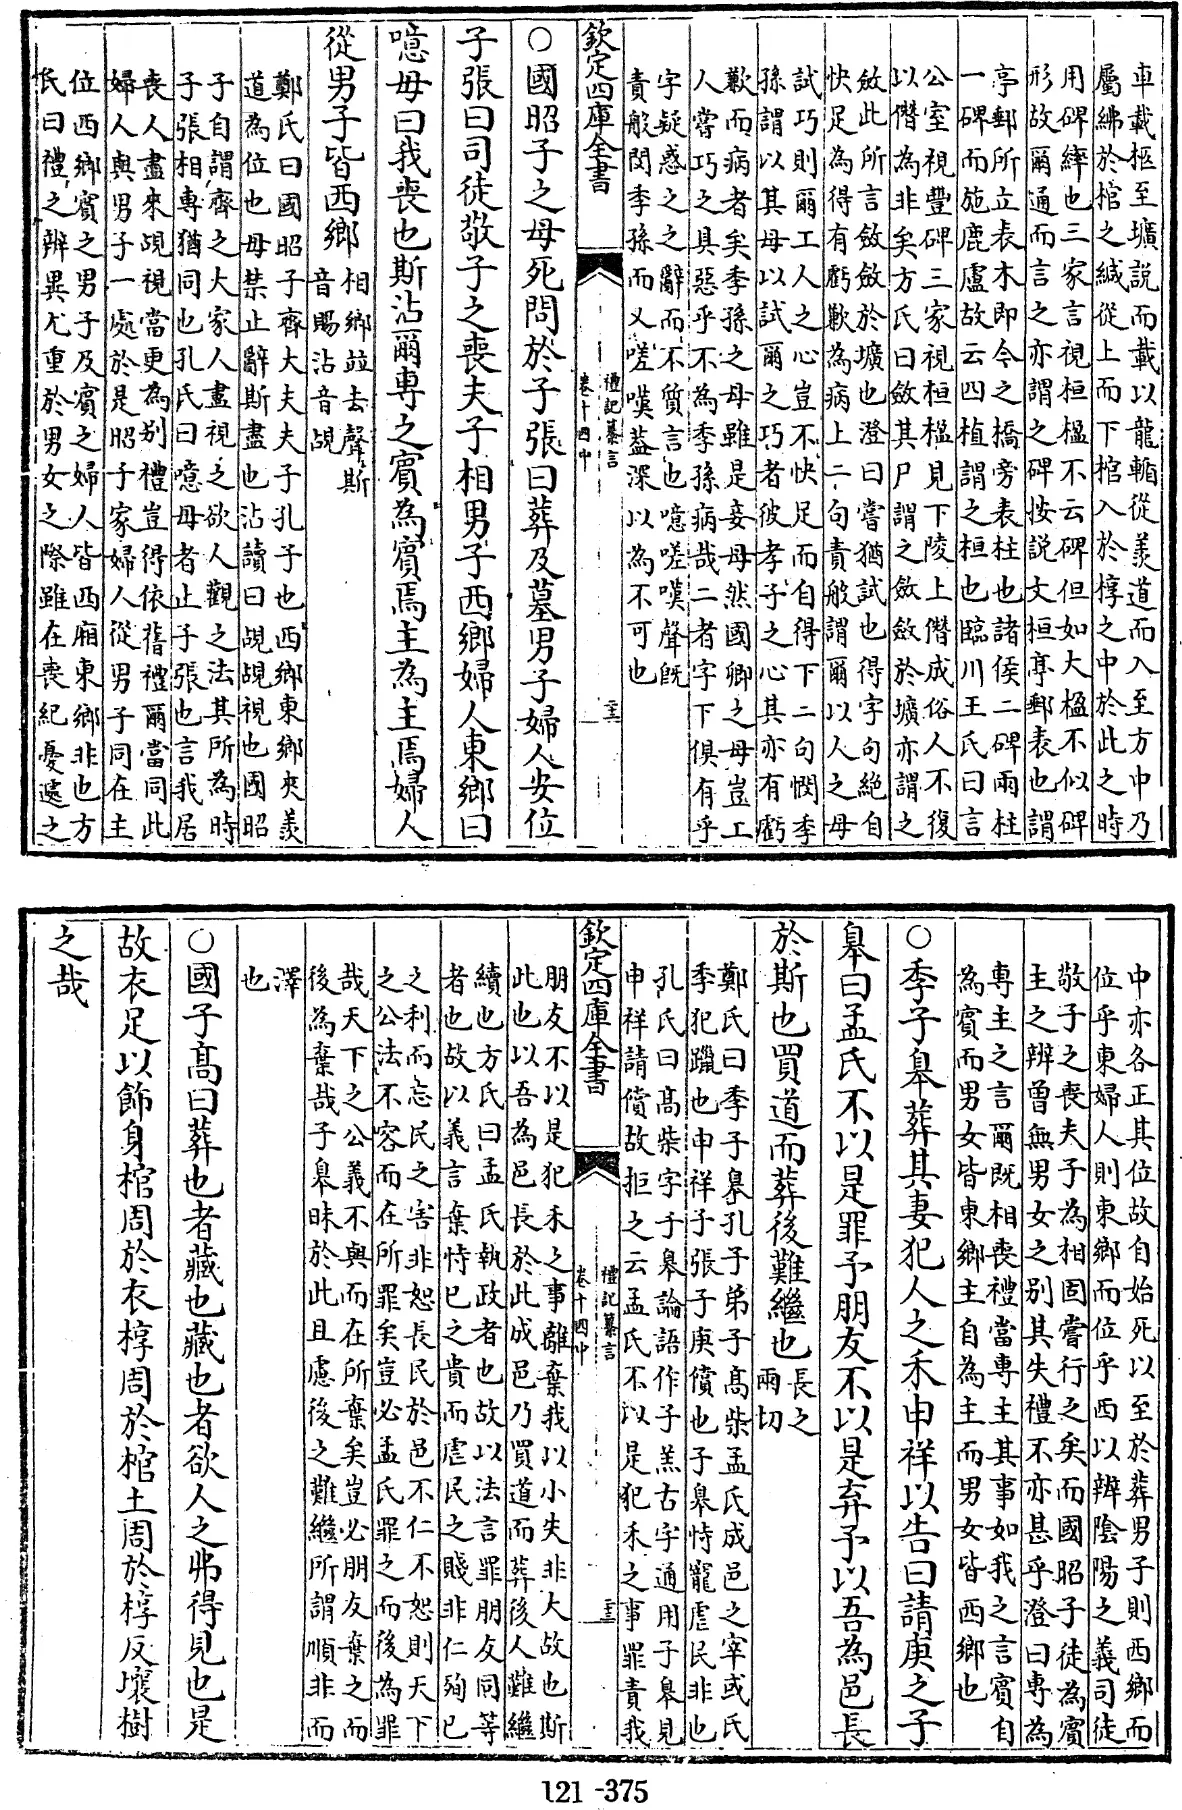 車載柩至壙說而載以龍輴從羨道而入至方中乃
屬紼於棺之緘從上而下棺入於椁之中於此之時
用碑繂也三家言視桓楹不云碑但如大楹不似碑
形故爾通而言之亦謂之碑按說文桓亭郵表也謂
亭郵所立表木即今之橋旁表柱也諸侯二碑兩柱
一碑而施鹿盧故云四植謂之桓也臨川王氏曰言
公室視豐碑三家視桓楹見下陵上僭成俗人不復
以僭為非矣方氏曰斂其尸謂之斂斂於壙亦謂之
斂此所言斂斂於壙也澄曰嘗猶試也得字句絶自
快足為得有虧歉為病上二句責般謂爾以人之母
試巧則爾工人之心豈不快足而自得下二句憫季
孫謂以其母以試爾之巧者彼孝子之心其亦有虧
歉而病者矣季孫之母雖是妾母然國卿之母豈工
人嘗巧之具惡乎不為季孫病哉二者字下俱有乎
字疑惑之之辭而不質言也噫嗟嘆聲旣
責般閔季孫而又嗟嘆葢深以為不可也
欽定四庫全書
禮記纂言
卷十四中
二十三
○國昭子之母死問於子張曰葬及墓男子婦人安位
子張曰司徒敬子之喪夫子相男子西鄉婦人東鄉曰
噫毋曰我喪也斯沾爾専之賔為賔焉主為主焉婦人
從男子皆西鄉
相鄉竝去聲斯
音賜沾音覘
鄭氏曰國昭子齊大夫夫子孔子也西鄉東鄉夾羨
道為位也毋禁止辭斯盡也沾讀曰覘覘視也國昭
子自謂齊之大家人盡視之欲人觀之法其所為時
子張相専猶同也孔氏曰噫毋者止子張也言我居
喪人盡來覘視當更為别禮豈得依舊禮爾當同此
婦人與男子一處於是昭子家婦人從男子同在主
位西鄉賔之男子及賔之婦人皆西廂東鄉非也方
氏曰禮之辨異尤重於男女之際雖在喪紀憂遽之
中亦各正其位故自始死以至於葬男子則西鄉而
位乎東婦人則東鄉而位乎西以辨陰陽之義司徒
敬子之喪夫子為相固嘗行之矣而國昭子徒為賔
主之辨曽無男女之别其失禮不亦甚乎澄曰専為
専主之言爾既相喪禮當専主其事如我之言賔自
為賔而男女皆東鄉主自為主而男女皆西鄉也
○季子臯葬其妻犯人之禾申祥以告曰請庚之子
臯曰孟氏不以是罪予朋友不以是弃予以吾為邑長
於斯也買道而葬後難繼也
長之
兩切
鄭氏曰季子臯孔子弟子髙柴孟氏成邑之宰或氏
季犯躐也申祥子張子庚償也子臯恃寵虐民非也
孔氏曰髙柴字子臯論語作子羔古字通用子臯見
申祥請償故拒之云孟氏不以是犯禾之事罪責我
欽定四庫全書
禮記纂言
卷十四中
二十三
朋友不以是犯禾之事離棄我以小失非大故也斯
此也以吾為邑長於此成邑乃買道而葬後人難繼
續也方氏曰孟氏執政者也故以法言罪朋友同等
者也故以義言棄恃已之貴而虐民之賤非仁殉已
之利而忘民之害非恕長民於邑不仁不恕則天下
之公法不容而在所罪矣豈必孟氏罪之而後為罪
哉天下之公義不與而在所棄矣豈必朋友棄之而
後為棄哉子臯昧於此且慮後之難繼所謂順非而
澤
也
○國子髙曰葬也者藏也藏也者欲人之弗得見也是
故衣足以飾身棺周於衣椁周於棺土周於椁反壤樹
之哉
121-375